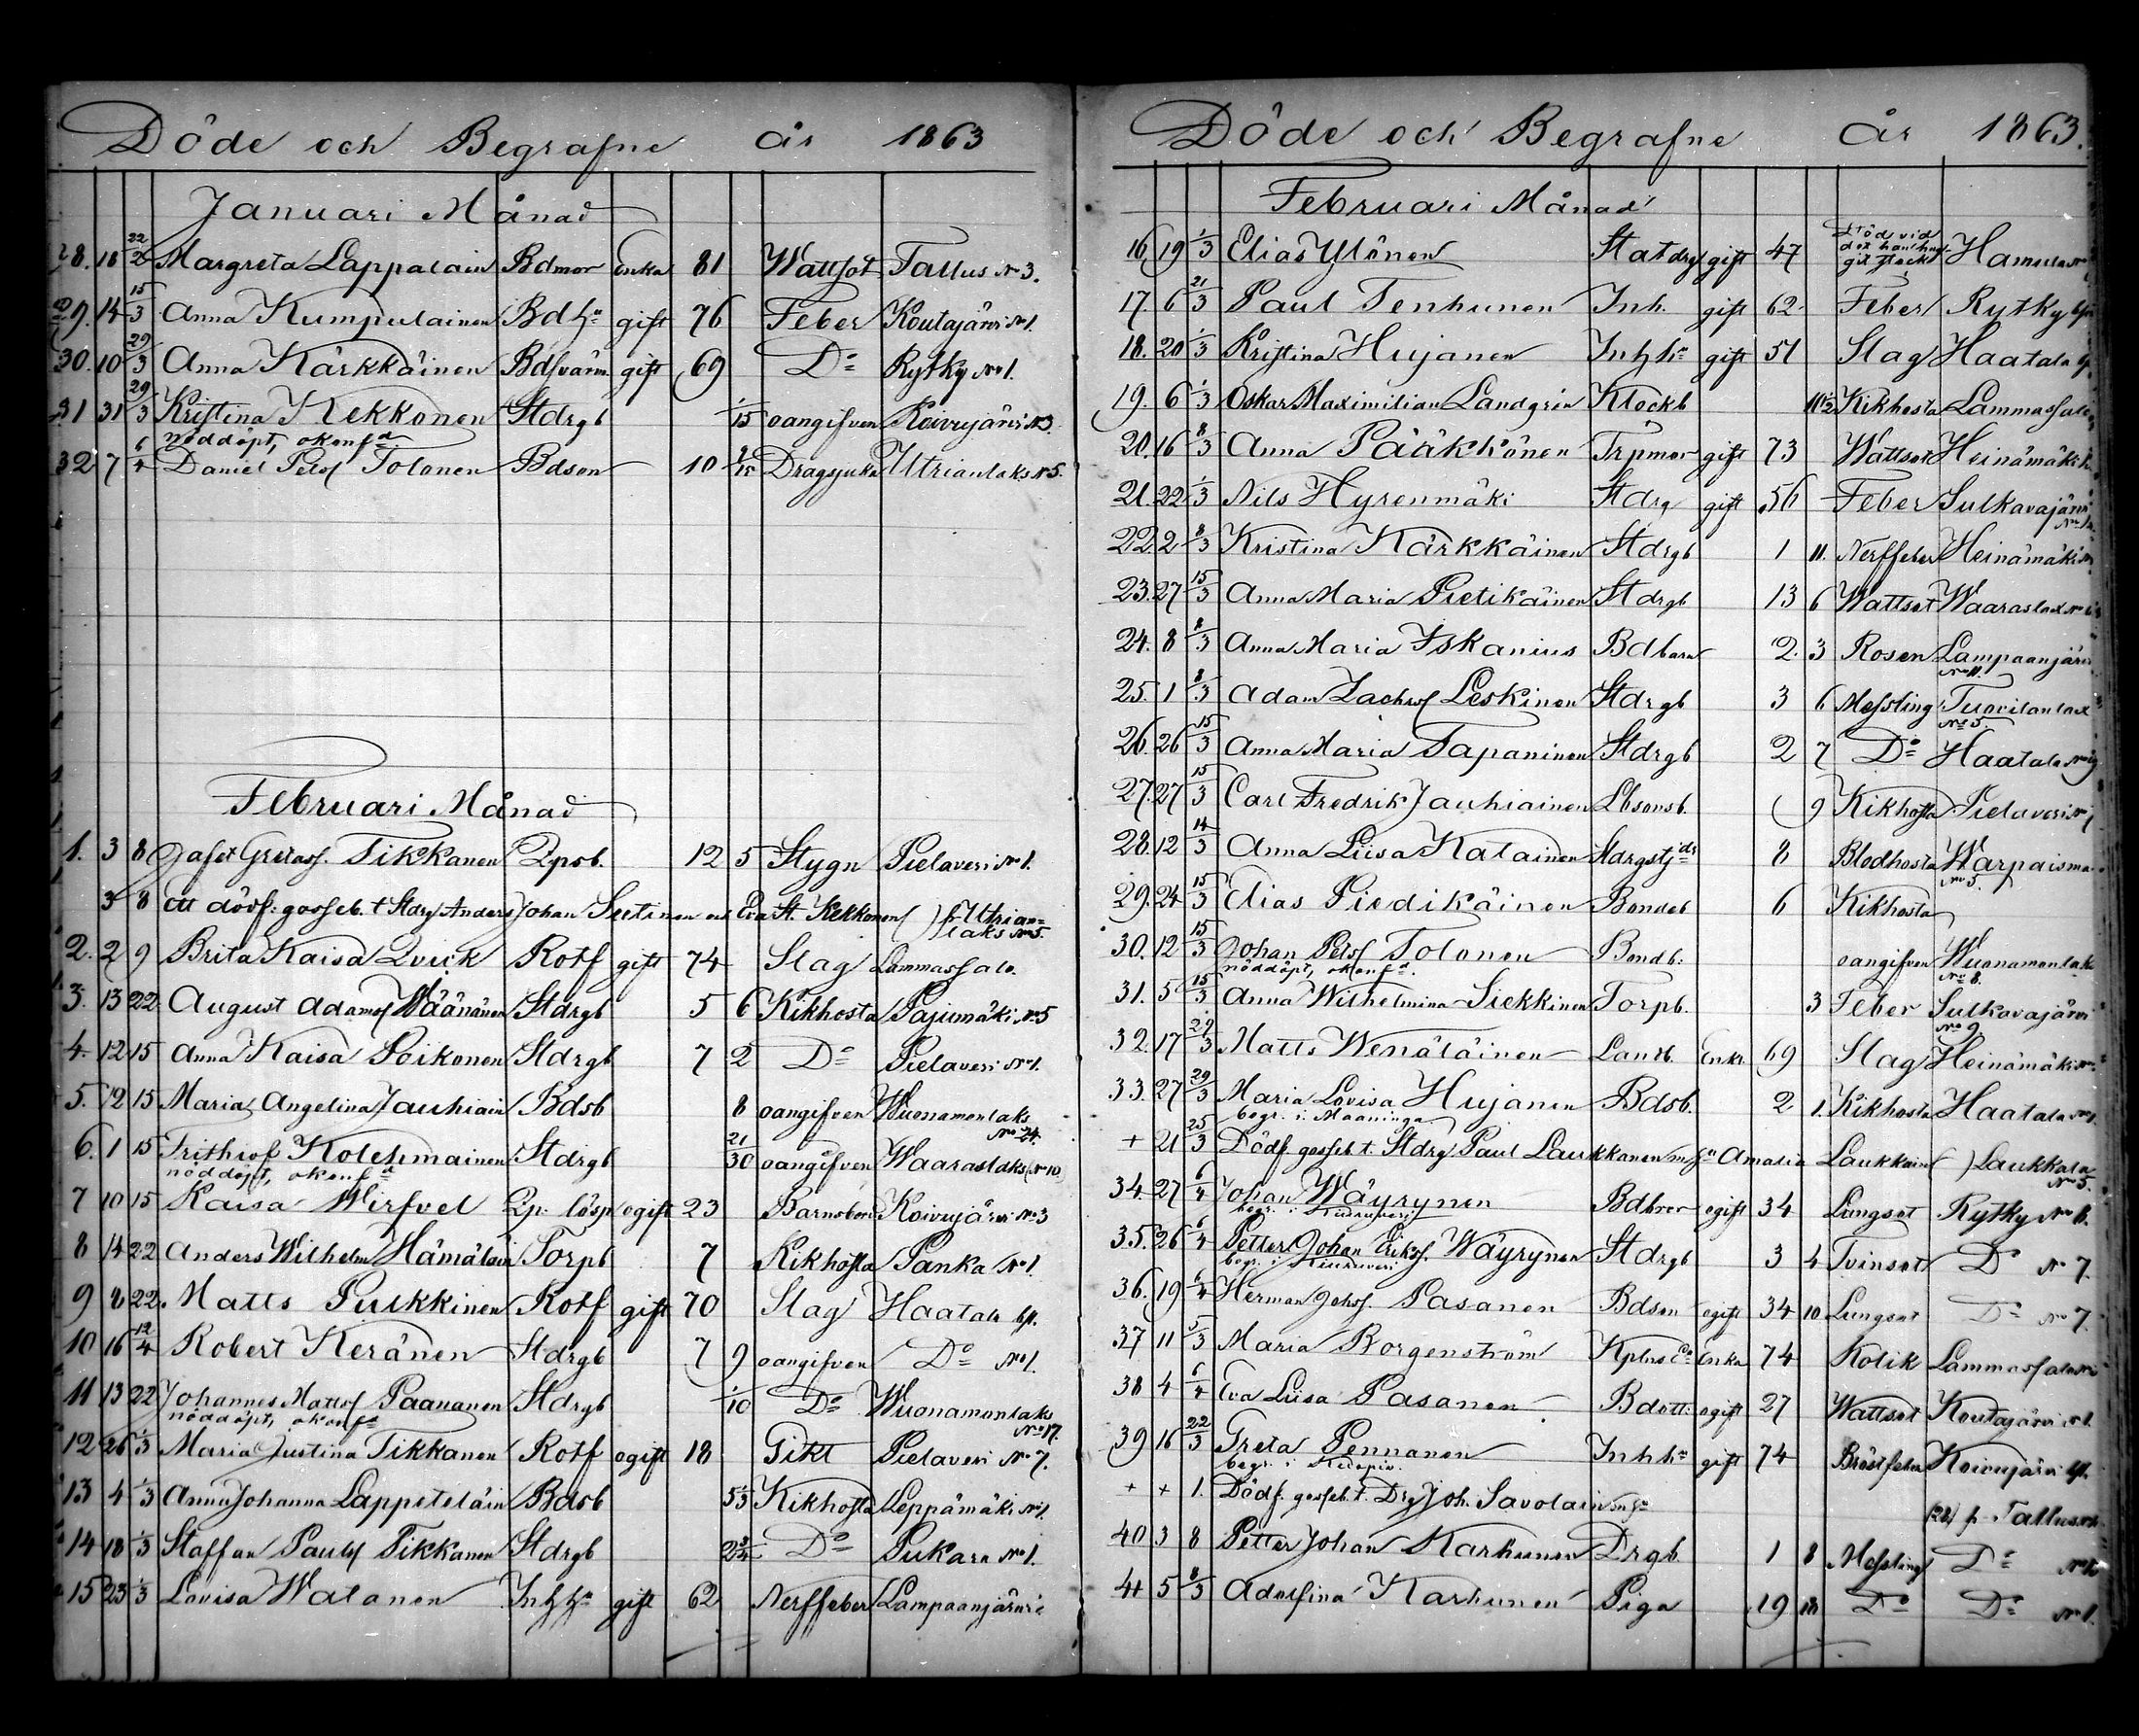 Döde och Begrafne år 1863
Januari Månad
28. 18 22/2 Margreta Lappalain Bdmor Enka 81 Wattsot Tallus No 3.
29. 14 15/3 Anna Kumpulainen Bdha gift 76 Feber Koutajärvi No 1.
30. 10 29/3 Anna Kärkkäinen Bdsvärm gift 69 Do Rytky No 1.
31 31 29/3 Kristina Kekkonen Stdrgb 1/15 oangifven Koivujärvi No 3.
nöddöpt, okonfd
32 7 6/4 Daniel Petsf Tolonen Bdson 10 Dragsjuka Utrianlaks No 5.
Februari Månad
1. 3 8 Jafet Gretasf. Tikkanen Qpsb. 12 5 Stygn Pielaveri No 1.
3 8 Ett dödf: gosseb. t Stdrg Anders Johan Sutinen och Eva St. Kekkonen fr Utrian=
laks No 5.
2. 2 9 Brita Kaisa Qvick Rotf gift 74 Slag Lammassalo
3. 13 22 August Adamsf Wäänänen Stdrgb 5 6 Kikhosta Pajumäki No 5
4. 12 15 Anna Kaisa Poikonen Stdrgb 7 2 Do Pielaveri No 1.
5. 12 15 Maria Angelina Jauhiain Bdsb 8 oangifven Wuonamonlaks
No 24.
6. 1 15 Frithiof Kolehmainen Stdrgb 21/30 oangifven Waaraslaks (No 10)
nöddöpt, okonfd
7 10 15 Kaisa Wirfvel Qp. lösp ogift 23 Barnsbörd Koivujärvi No 3
8 14 22 Anders Wilhelm Hämäläin Torpb 7 Kikhosta Panka No 1.
9 8 22. Matts Pulkkinen Rotf gift 70 Slag Haatala
10 16 12/4 Robert Keränen Stdrgb 7 9 oangifven Do No 1.
11 13 22 Johannes Mattsf Paananen Stdrgb 1/10 Do Wuonamonlaks
nöddöpt, okonfd No 17.
12 26 1/3 Maria Justina Tikkanen Rotf ogift 18 Gikt Pielaveri No 7.
13 4 1/3 Anna Johanna Lappeteläin Bdsb Kikhosta Leppämäki No 1.
14 18 1/3 Staffan Paulsf Tikkanen Stdrgb Do Pukara No 1.
15 23 1/3 Lovisa Watanen Inhha gift 62 Nerffeber Lampaanjärvi
Döde och Begrafne år 1863.
Februari Månad
16 19 1/3 Elias Ylönen Statdrg gift 47 Död vid
Hamula No
17. 6 21/3 Paul Tenhunen Inh. gift 62 Feber Rytky
18. 20 1/3 Kristina Hujanen Inhha gift 51 Slag Haatala
19. 6 1/3 Oskar Maximilian Landgrin Klockb Kikhosta Lammassalo
20. 16 8/3 Anna Pääkkönen Trpmor gift 73 Wattsot Heinämäki
21. 22 1/3 Nils Hyrenmäki Stdrg gift 56 Feber Sulkavajärvi
22 2 8/3 Kristina Kärkkäinen Stdrgb 1 11. Nerffeber Heinämäki
23. 27 15/3 Anna Maria Pietikäinen Stdrgb 13 6 Wattsot Waaraslax No
24. 8 8/3 Anna Maria Iskanius Bdbarn 2. 3 Rosen Lampaanjärvi
No 11.
25. 1 8/3 Adam Zachrsf Leskinen Stdrgb 3 6 Messling Tuovilanlax
No 5.
26. 26 15/3 Anna Maria Tapaninen Stdrgb 2 7 Do Haatala No
27. 27 15/3 Carl Fredrik Jauhiainen Lbsonsb. 9 Kikhosta Pielaveri No 1
28. 12 14/3 Anna Liisa Katainen Stdrgstjdr 8 Blodhosta Warpaisma
No 5.
29. 24 15/3 Elias Piedikäinen Bondeb 6 Kikhosta
30. 12 15/3 Johan Petsf Tolonen Bondb. oangifven Wuonamonlaks
nöddöpt, okonfd. No 8.
31. 5 15/3 Anna Wilhelmina Siekkinen Torpb. 3 Feber Sulkavajärvi
No 9
32. 17 29/3 Matts Wenäläinen Landb. Enkl 69 Slag Heinämäki No
33. 27 29/3 Maria Lovisa Hujanen Bdsb. 2 1. Kikhosta Haatala No 1.
begr. i Maaninga
+ 21 25/3 Dödf. gosseb t. Stdrg Paul Laukkanen m ha Amalia Laukkain Laukkala
No 5.
34. 27 6/4 Johan Wäyrynen Bdbror ogift 34 Lungsot Rytky No 8.
begr. i Kiuruvesi
35. 26 6/4 Petter Johan Erikss. Wäyrynen Stdrgb 3 4 Tvinsot Do No 7.
begr. i Kiuruvesi
36. 19 6/4 Herman Johsf. Pasanen Bdson ogift 34 10 Lungsot Do No 7.
37 11 5/3 Maria Borgenström Enka 74 Kolik Lammassalo
38 4 6/4 Eva Liisa Pasanen Bdott. ogift 27 Wattsot Koutajärvi No 1.
39 16 22/3 Greta Pennanen Inhha gift 74 Bröstfeber Koivujärvi
begr. i Kuopio.
+ + 1. Dödf. gosseb. t. Drg Joh. Savolain m ha fr. Tallus
40 3 8 Petter Johan Karhunen Drgb. 1 8 Messling Do No 1
41 5 8/3 Adolfina Karhunen Piga 19 Do Do No 1.